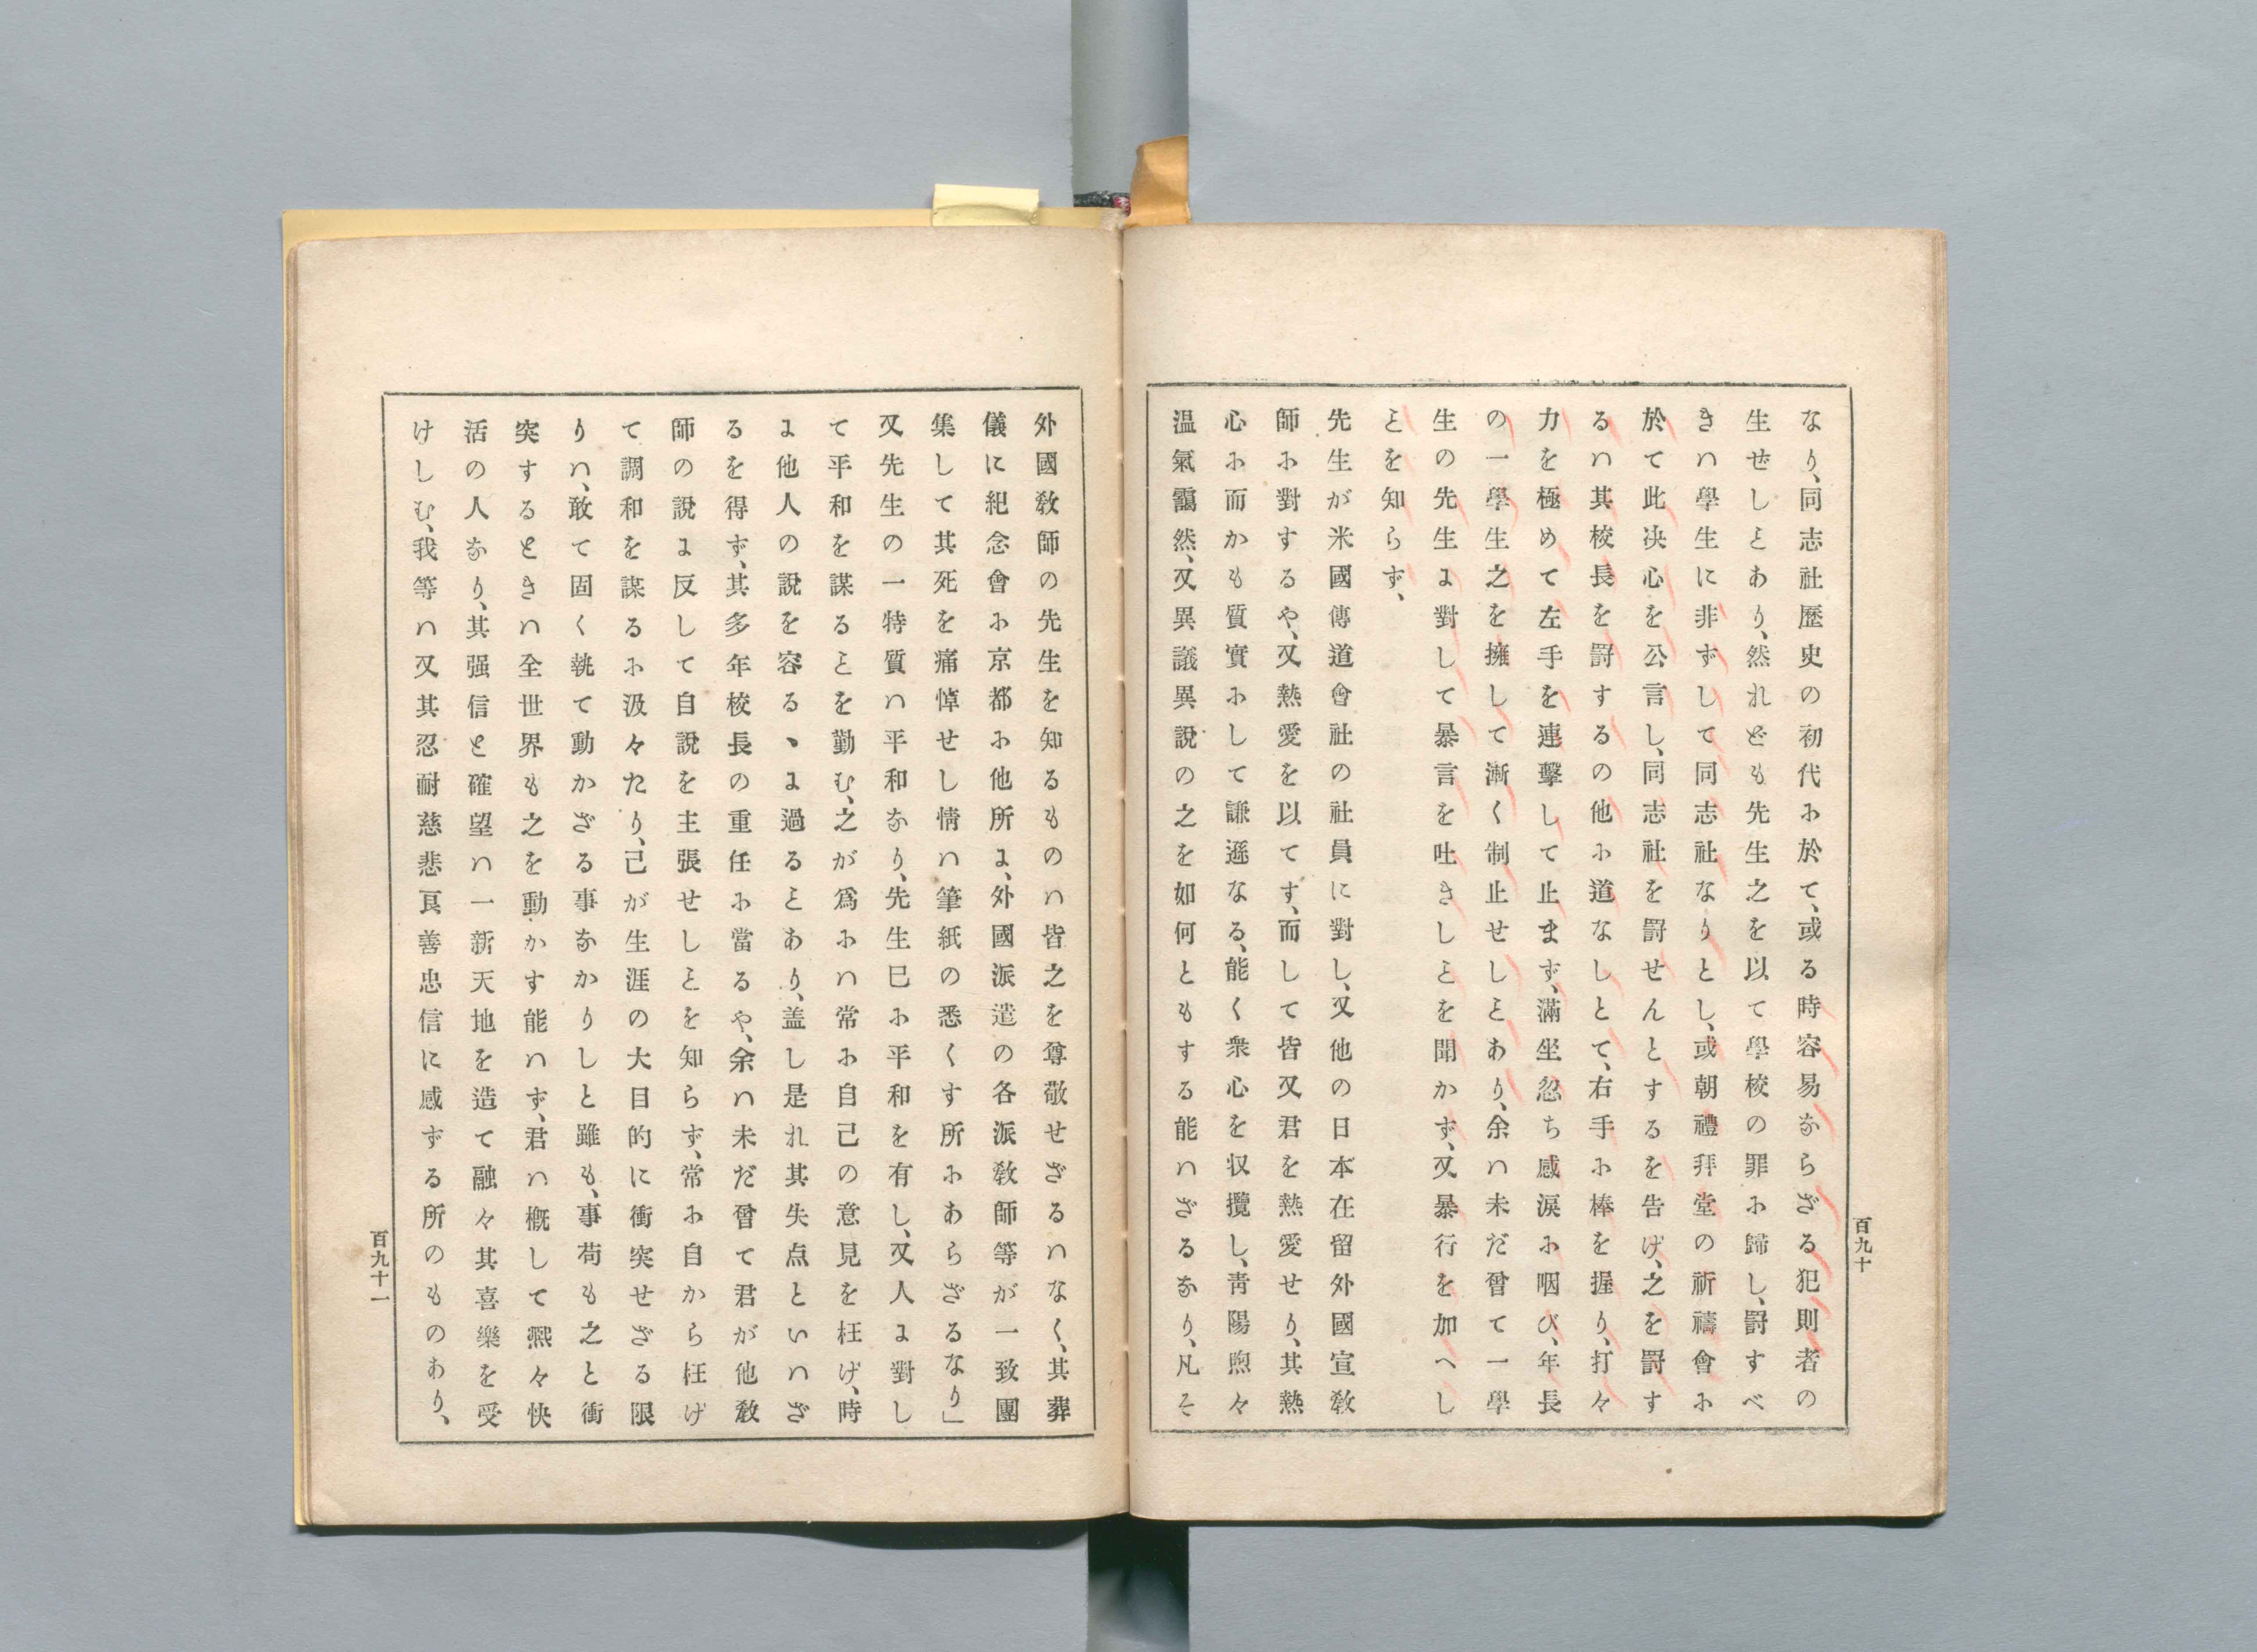 なり、同志社歷史の初代に於て、或る時容易ならざる犯則者の
生ぜしとあり、然れども先生之を以て學校の罪に歸し、罸すべ
きハ學生に非ずして同志社なりとし、或朝禮拜堂の祈禱會に
於て此决心を公言し、同志社を罸せんとするを告げ、之を罸す
るハ其校長を罸するの他に道なしとて、右手に棒を握り、打々
力を極めて左手を連擊して止まず、滿坐忽ち感淚に咽び、年長
の一學生之を擁して漸く制止せしとあり、余ハ未だ曾て一學
生の先生よ對して暴言を吐きしとを聞かず、又暴行を加へし
とを知らず、
先生が米國傳道會社の社員に對し、又他の日本在留外國宣敎
師に對するや、又熱愛を以てす、而して皆又君を熱愛せり、其熱
心に而かも質實にして謙遜なる、能く衆心を収攬し、靑陽煦々
温氣靄然、又異議異說の之を如何ともする能ハざるなり、凡そ
百九十
外國敎師の先生を知るものハ皆之を尊敬せざるハなく、其葬
儀に紀念會に京都に他所よ、外國派遣の各派敎師等が一致團
集して其死を痛悼せし情ハ筆紙の悉くす所にあらざるなり」
又先生の一特質ハ平和なり、先生已に平和を有し、又人よ對し
て平和を謀るとを勤む、之が爲にハ常に自己の意見を枉げ、時
よ他人の說を容るゝよ過るとあり、盖し是れ其失点といハざ
るを得ず、其多年校長の重任に當るや、余ハ未だ曾て君が他敎
師の說よ反して自說を主張せしとを知らず、常に自から枉げ
て調和を謀るに汲々たり、己が生涯の大目的に衝突せざる限
りハ、敢て固く執て動かざる事なかりしと雖も、事苟も之と衝
突するときハ全世界も之を動かす能ハず、君ハ槪して凞々快
活の人なり、其强信と確望ハ一新天地を造て融々其喜樂を受
けしむ、我等ハ又其忍耐慈悲良善忠信に感ずる所のものあり、
百九十一